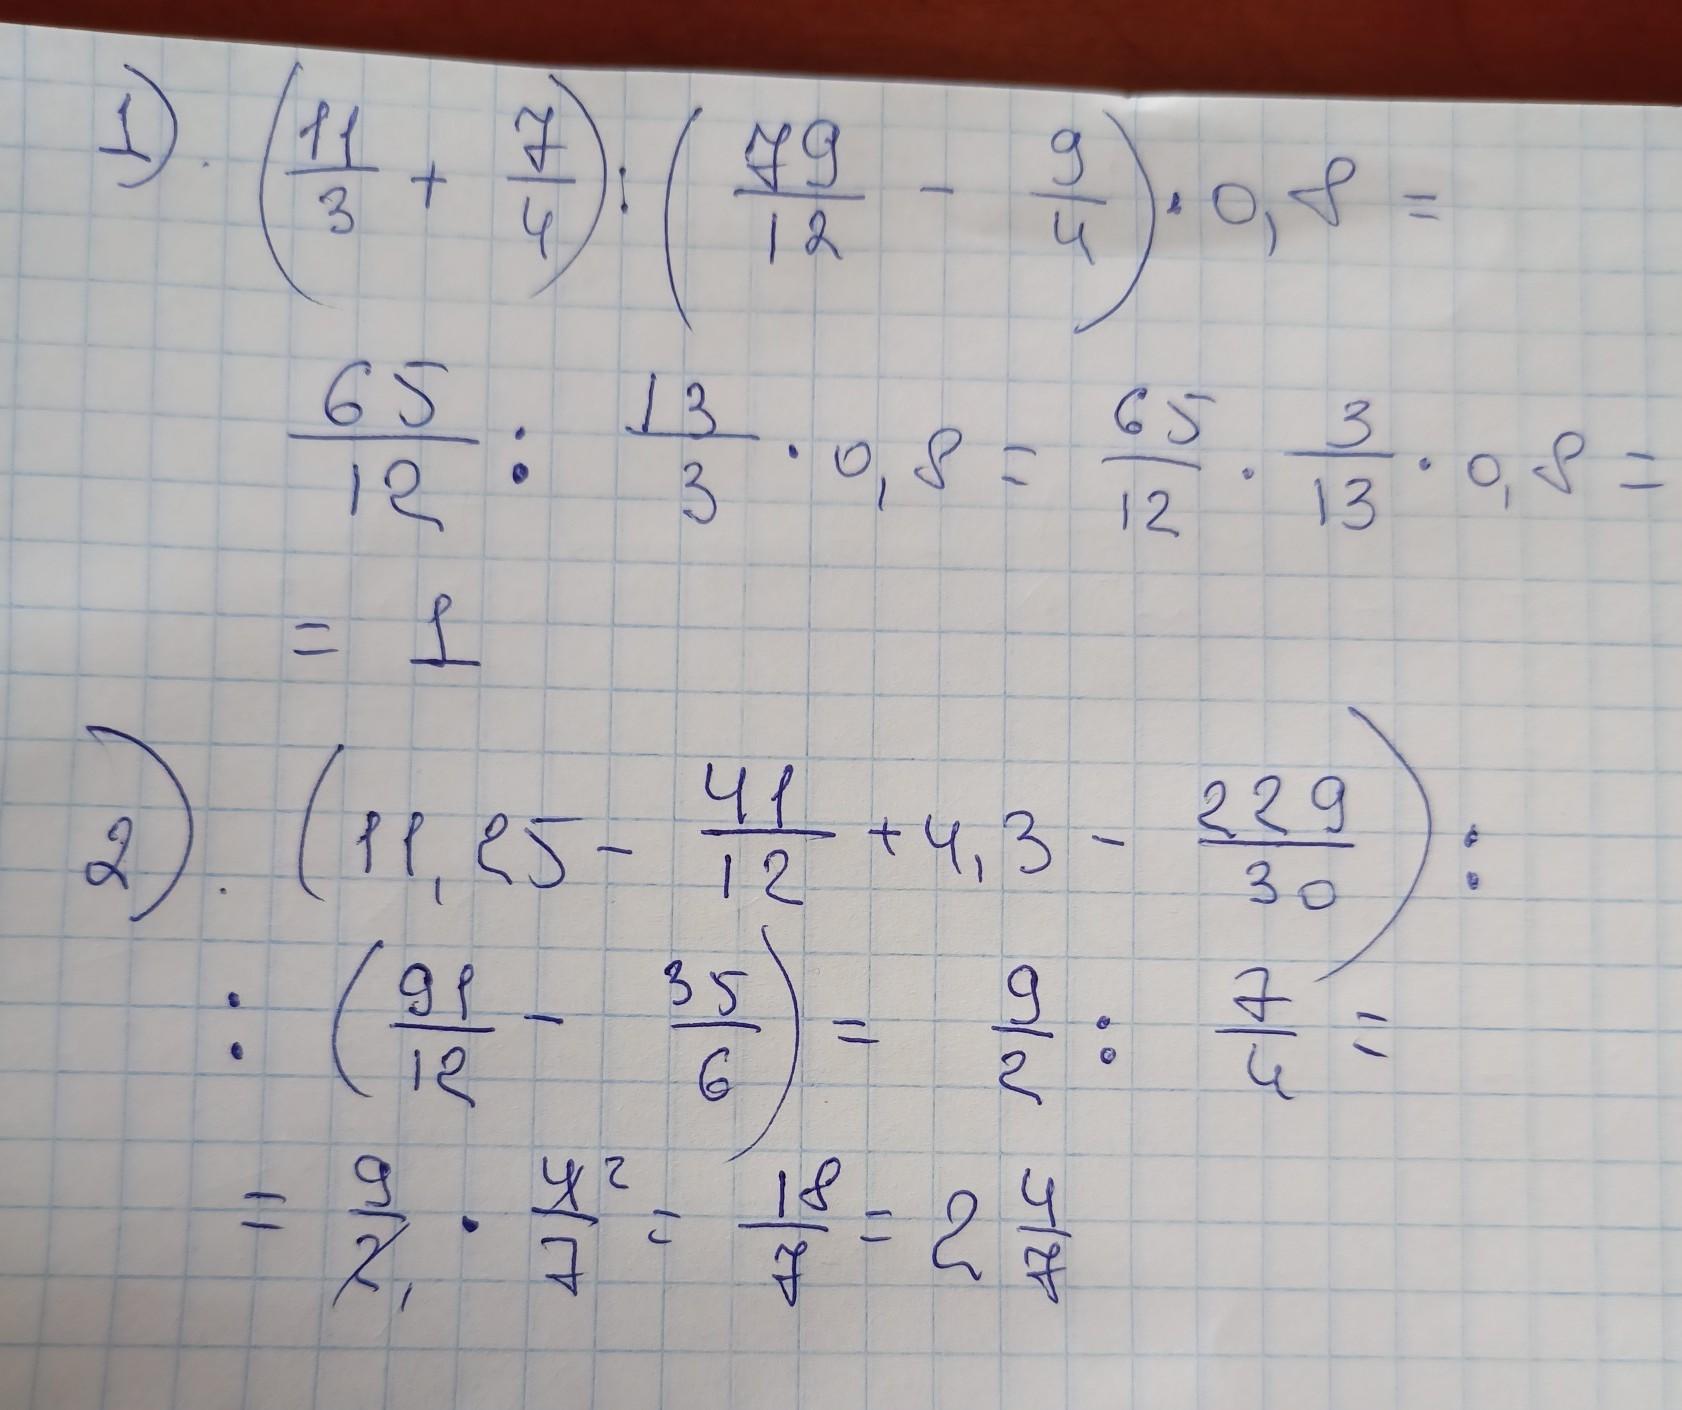 1). (11/3 + 7/4) : (79/12 - 9/4) · 0,8 =
65/12 : 13/3 · 0,8 = 65/12 · 3/13 · 0,8 =
= 1
2). (11,25 - 41/12 + 4,3 - 229/30) :
: (91/12 - 35/6) = 9/2 : 7/4 =
= 9/2 1 · 4 2/7 = 18/7 = 2 4/7